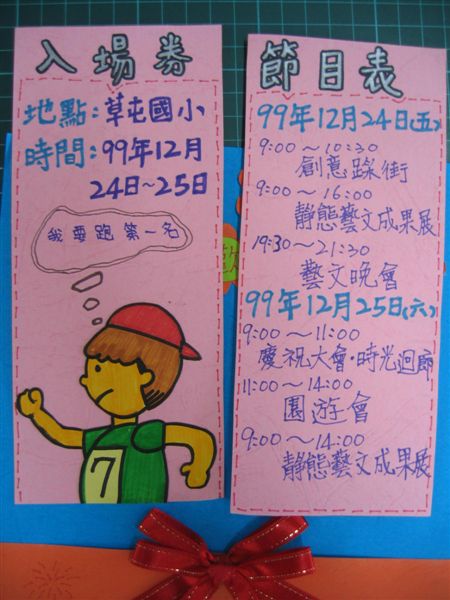 入場券
地點:草屯國小
時間:99年12月
24日~25日
我要跑第一名
7
節目表
99年12月24日(五)
9:00~10:30
創意踩街
9:00~16:00
靜態藝文成果展
19:30~21:30
藝文晚會
99年12月25日(六)
9:00~11:00
慶祝大會·時光迴廊
11:00~14:00
園遊會
9:00~14:00
靜態藝文成果展